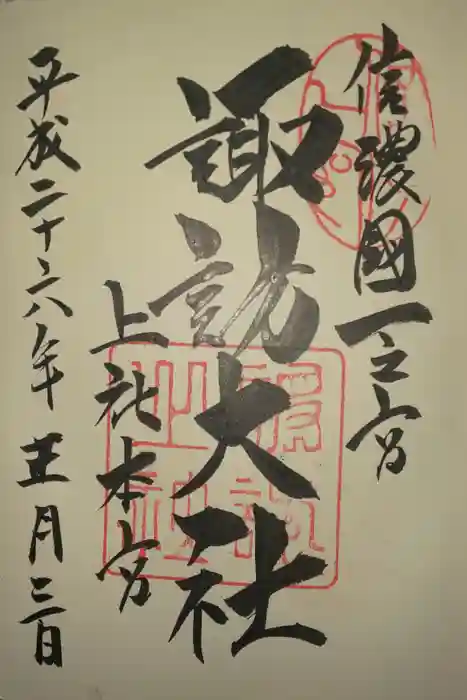 信濃國一之宮
諏訪大社
上社本宮
平成二十六年正月三日